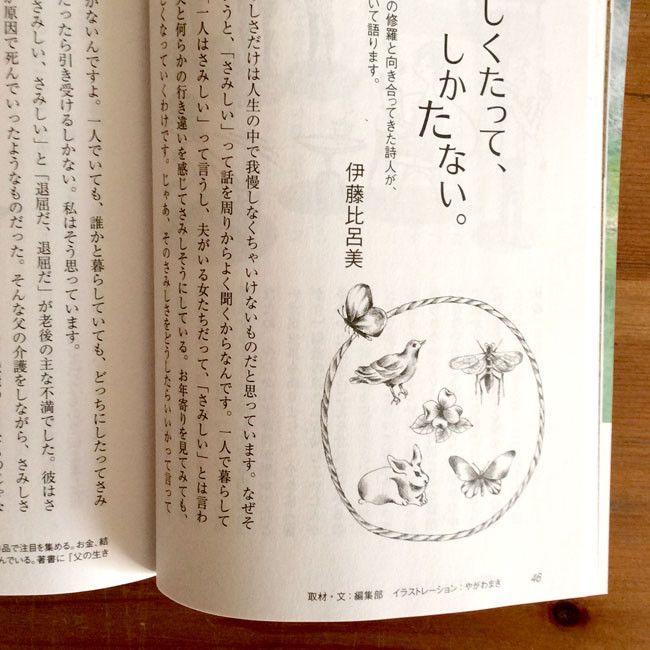 しくたって、
しかたない。
の修羅と向き合ってきた詩人が、
いて語ります。
伊藤比呂美
しさだけは人生の中で我慢しなくちゃいけないものだと思っています。なぜそ
うと、「さみしい」って話を周りからよく聞くからなんです。一人で暮らして
「一人はさみしい」って言うし、夫がいる女たちだって、「さみしい」とは言わ
夫と何らかの行き違いを感じてさみしそうにしている。お年寄りを見てみても、
しくなっていくわけです。じゃあ、そのさみしさをどうしたらいいかって言って
取材・文：編集部 イラストレーション：やがわまき
46
がないんですよ。一人でいても、誰かと暮らしていても、どっちにしたってさみ
だったら引き受けるしかない。私はそう思っています。
さみしい、さみしい」と「退屈だ、退屈だ」が老後の主な不満でした。彼はさ
が原因で死んでいったようなものだった。そんな父の介護をしながら、さみしさ
品で注目を集める。お金、結
んでいる。著書に『父の生き